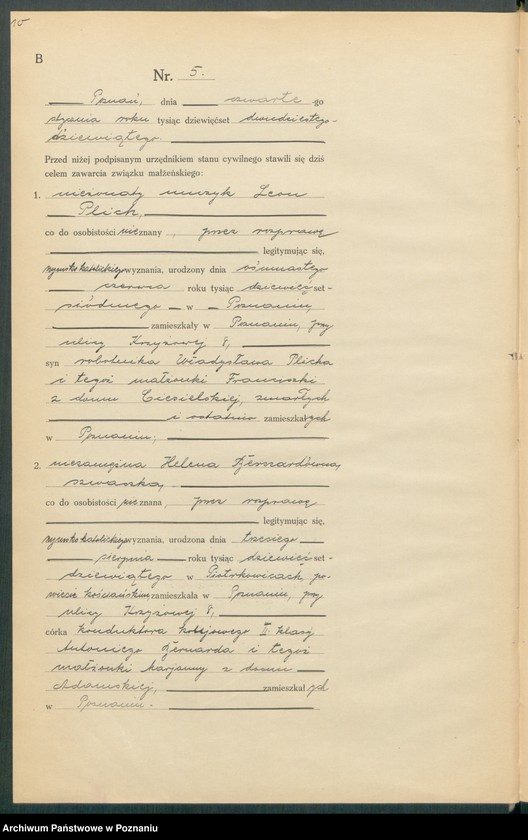 10
B
Nr. 5.
Poznań, dnia czwarte go
stycznia roku tysiąc dziewięćset dwudziestego
dziewiątego.
Przed niżej podpisanym urzędnikiem stanu cywilnego stawili się dziś
celem zawarcia związku małżeńskiego:
1. nieżonaty muzyk Leon
Plich,
co do osobistości nieznany, przez rozprawę
legitymując się,
rzymsko katolickiego wyznania, urodzony dnia ośmnastego
czerwca roku tysiąc dziewięćset-
siódmego w Poznaniu,
zamieszkały w Poznaniu, przy
ulicy Krzyżowej 8,
syn robotnika Władysława Plicha
i tegoż małżonki Franciszki
z domu Ciesielskiej, zmarłych
i ostatnio zamieszkałych
w Poznaniu;
2. niezamężna Helena Bernardówna,
szwaczka,
co do osobistości nieznana, przez rozprawę
legitymując się,
rzymsko katolickiego wyznania, urodzona dnia trzeciego
sierpnia roku tysiąc dziewięćset-
dziewiątego w Piotrkowicach, po-
wiecie kościańskim zamieszkała w Poznaniu, przy
ulicy Krzyżowej 8,
córka konduktora kolejowego II. klasy
Antoniego Bernarda i tegoż
małżonki Marjanny z domu
Adamskiej, zamieszkałych
w Poznaniu.
Archiwum Państwowe w Poznaniu